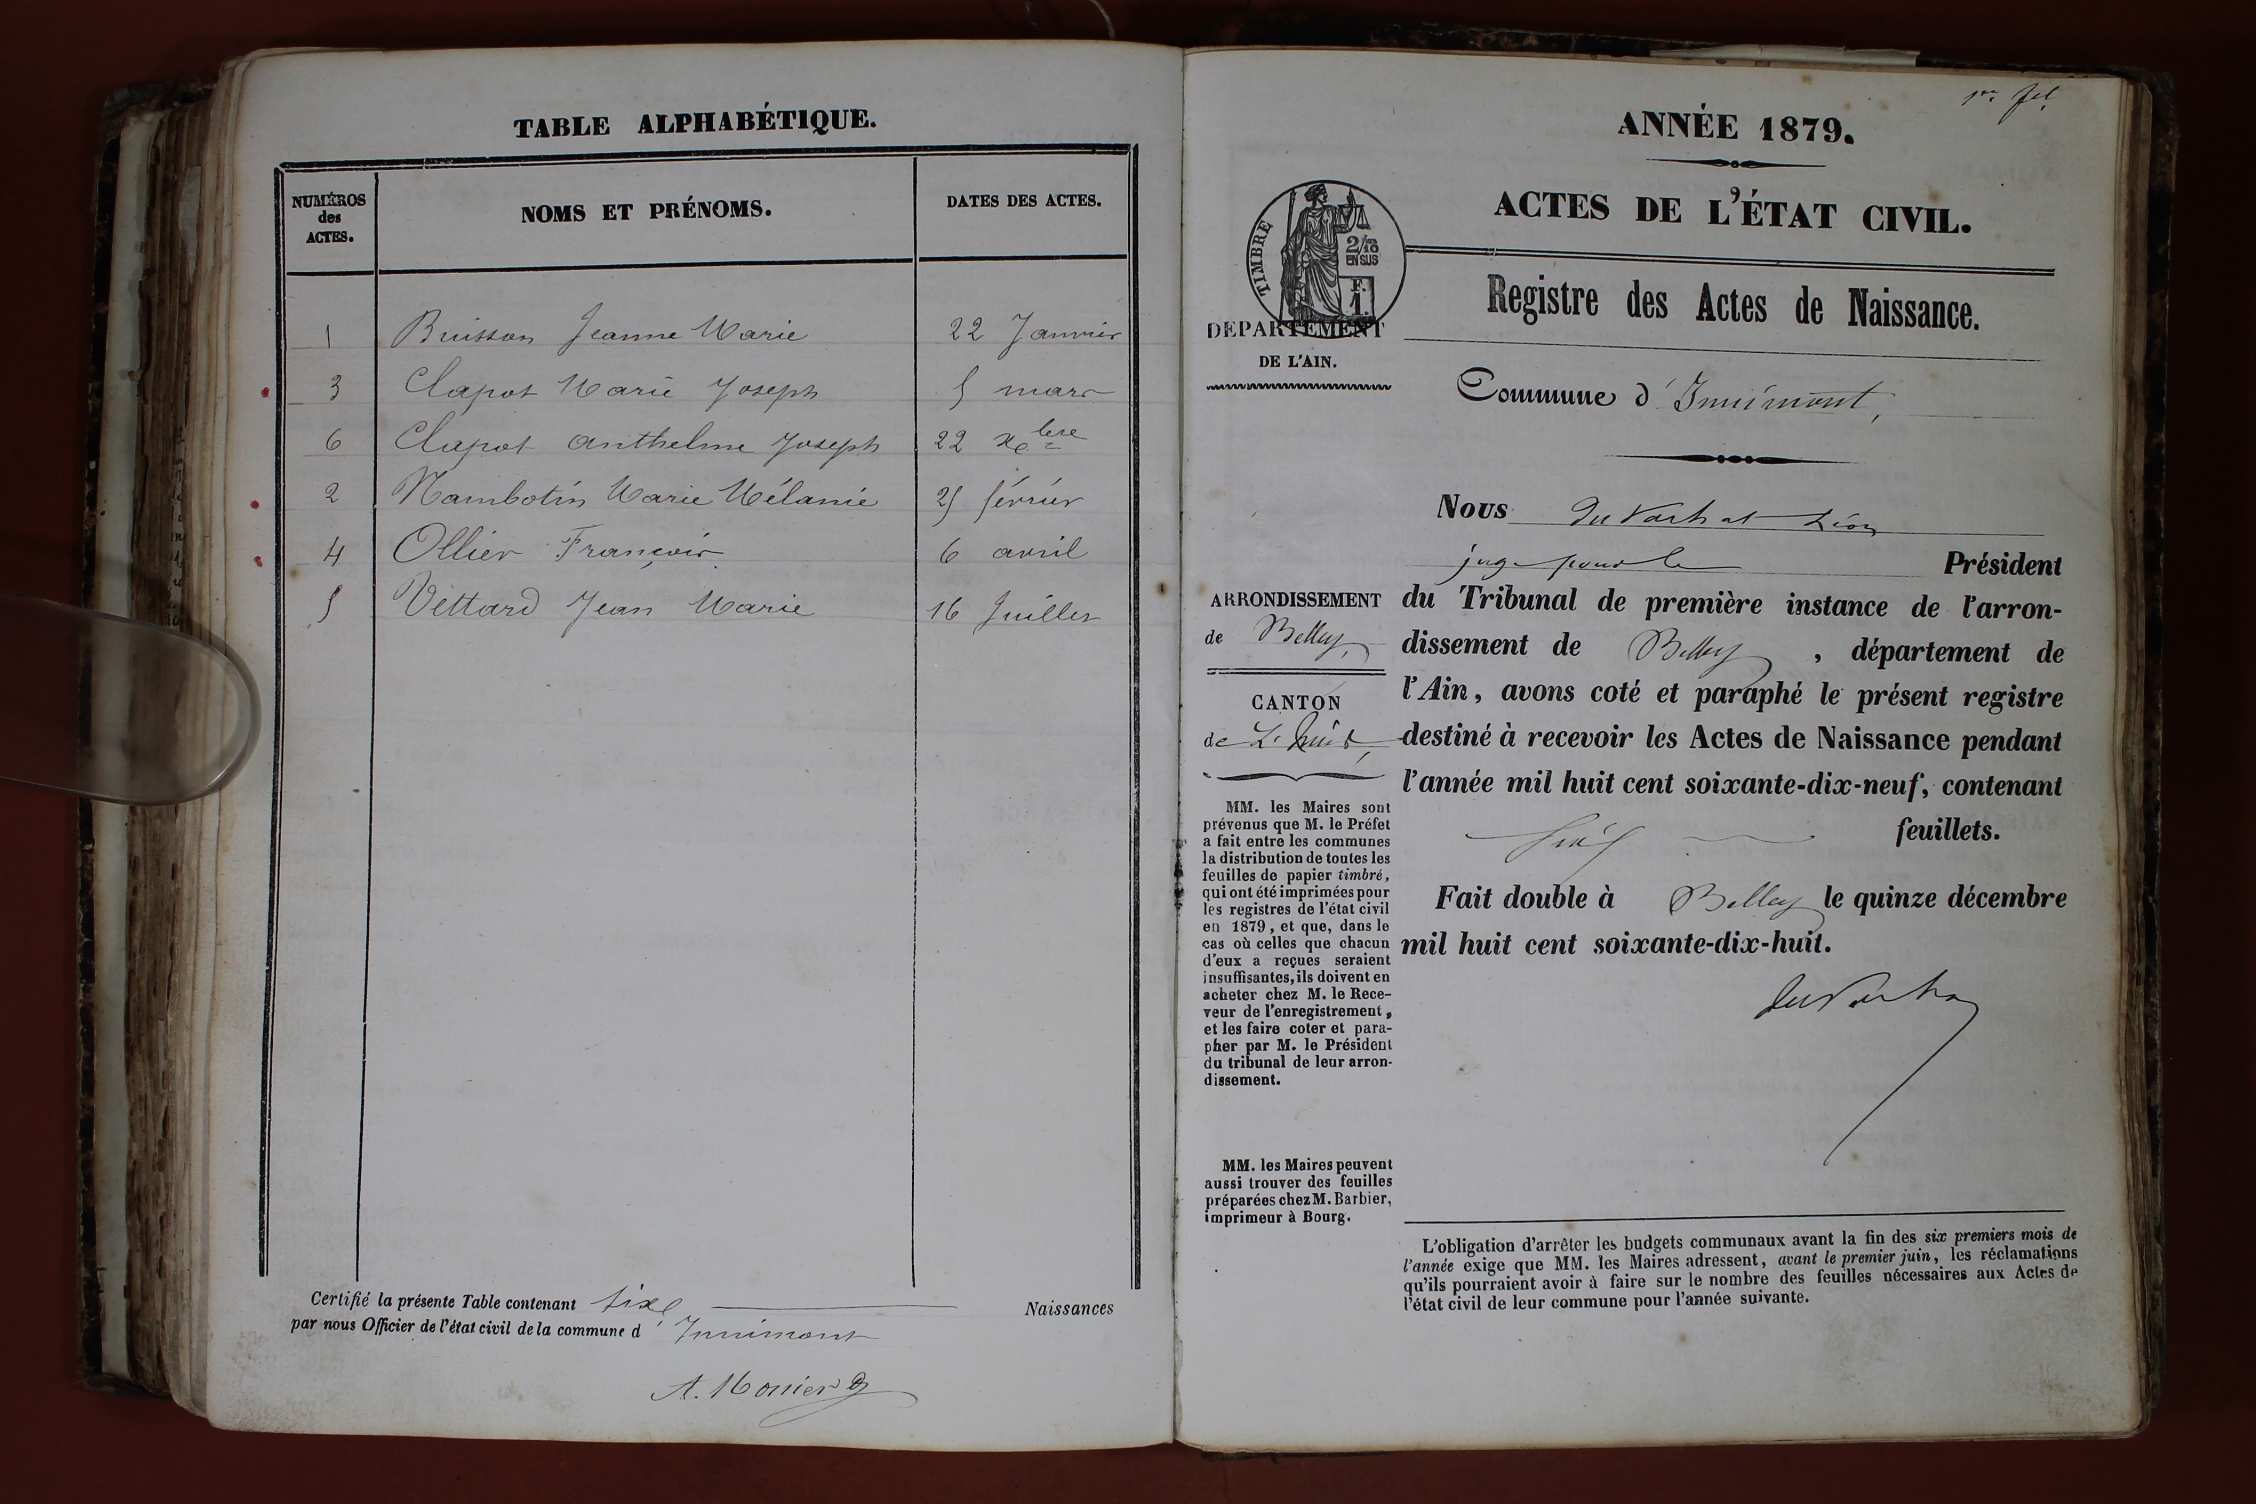 TABLE ALPHABÉTIQUE.
NUMÉROS
des
ACTES.
NOMS ET PRÉNOMS.
DATES DES ACTES.
1 Buisson Jeanne Marie 22 Janvier
3 Clapot Marie Joseph 5 mars
6 Clapot Anthelme Joseph 22 Xbre
2 Nambotin Marie Mélanie 25 février
4 Ollier François 6 avril
5 Vettard Jean Marie 16 Juillet
Certifié la présente Table contenant six Naissances
par nous Officier de l'état civil de la commune d'Innimont
A. Monier
1er fel
ANNÉE 1879.
ACTES DE L'ÉTAT CIVIL.
TIMBRE
2/10
EN SUS
F.
1.
DEPARTEMENT
DE L'AIN.
Registre des Actes de Naissance.
Commune d'Innimont,
Nous
juge pour le Président
du Tribunal de première instance de l'arron-
dissement de Belley, département de
l'Ain, avons coté et paraphé le présent registre
destiné à recevoir les Actes de Naissance pendant
l'année mil huit cent soixante-dix-neuf, contenant
feuillets.
Fait double à Belley le quinze décembre
mil huit cent soixante-dix-huit.
ARRONDISSEMENT
de Belley,
CANTON
de L'huis,
MM. les Maires sont
prévenus que M. le Préfet
a fait entre les communes
la distribution de toutes les
feuilles de papier timbré,
qui ont été imprimées pour
les registres de l'état civil
en 1879, et que, dans le
cas où celles que chacun
d'eux a reçues seraient
insuffisantes, ils doivent en
acheter chez M. le Rece-
veur de l'enregistrement,
et les faire coter et para-
pher par M. le Président
du tribunal de leur arron-
dissement.
MM. les Maires peuvent
aussi trouver des feuilles
préparées chez M. Barbier,
imprimeur à Bourg.
L'obligation d'arrêter les budgets communaux avant la fin des six premiers mois de
l'année exige que MM. les Maires adressent, avant le premier juin, les réclamations
qu'ils pourraient avoir à faire sur le nombre des feuilles nécessaires aux Actes de
l'état civil de leur commune pour l'année suivante.